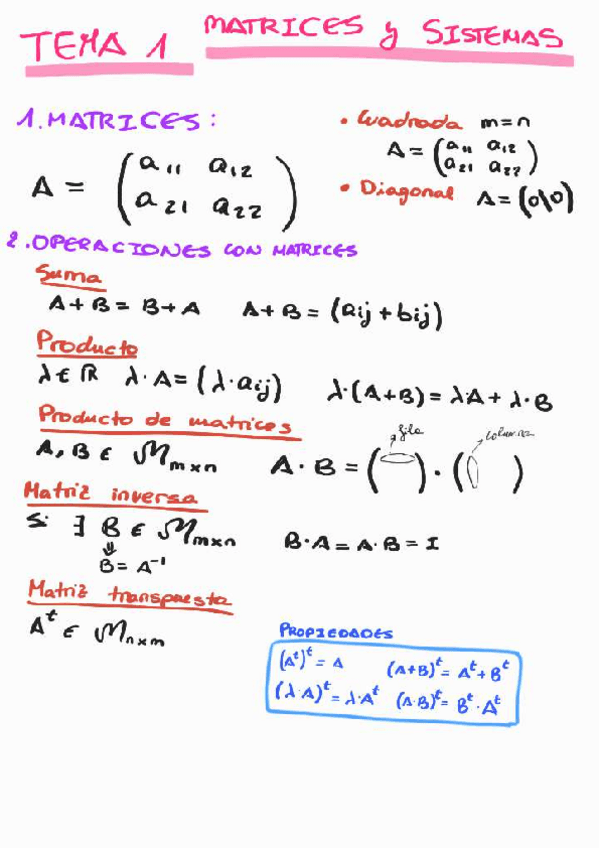 TEMA 1 MATRICES y SISTEMAS
1. MATRICES:
A = (a11 a12
a21 a22)
• Cuadrada m=n
A = (a11 a12
a21 a22)
• Diagonal A = (0\0)
2. OPERACIONES CON MATRICES
Suma
A+B = B+A A+B = (aij + bij)
Producto
λ ∈ ℝ λ·A = (λ·aij) λ·(A+B) = λA + λ·B
Producto de matrices
A, B ∈ Mm×n A·B = ( ) · ( )
fila columna
Matriz inversa
Si ∃ B ∈ Mm×n B·A = A·B = I
⇓
B = A⁻¹
Matriz transpuesta
Aᵗ ∈ Mn×m
PROPIEDADES
(Aᵗ)ᵗ = A (A+B)ᵗ = Aᵗ + Bᵗ
(λ·A)ᵗ = λ·Aᵗ (A·B)ᵗ = Bᵗ·Aᵗ